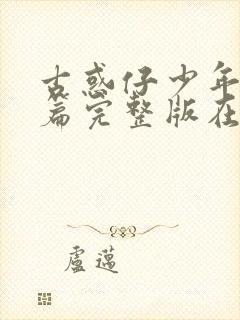 古惑仔少年
篇完整版在
盧邁